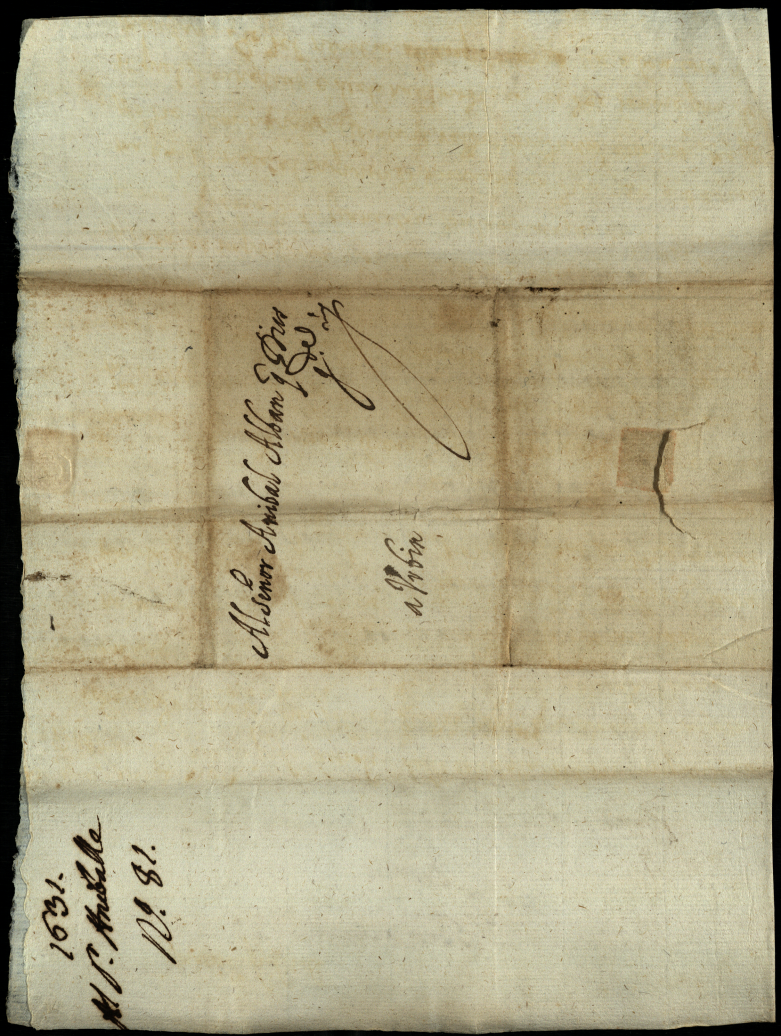 Al Señor Anibal Alban q Dios
gde
a Vrbin
1631.
Al Sr. Annibale
No. 81.